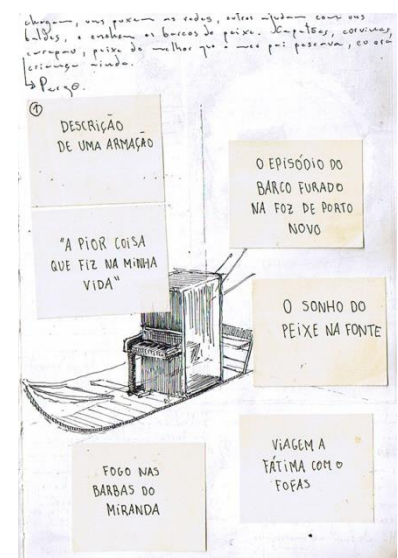 chegam, uns puxam as redes, outros ajudam com os
baldes, e enchem os barcos de peixe. Sapatões, corvinas,
carapau, peixe do melhor que o meu pai pescava, eu era
criança ainda.
①
DESCRIÇÃO
DE UMA ARMAÇÃO
"A PIOR COISA
QUE FIZ NA MINHA
VIDA"
O EPISÓDIO DO
BARCO FURADO
NA FOZ DE PORTO
NOVO
O SONHO DO
PEIXE NA FONTE
FOGO NAS
BARBAS DO
MIRANDA
VIAGEM A
FÁTIMA COM O
FOFAS